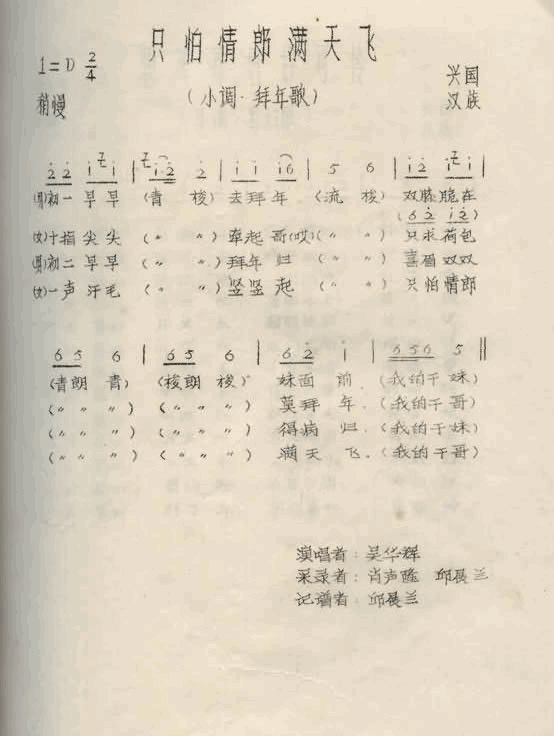 只怕情郎满天飞
1=D 2/4
（小调·拜年歌）
兴国
稍慢
汉族
2̇ 2̇ 1̇ 1̇ | 1̇ 2̇ 2̇ | 1̇ 1̇ 1̇ 6 | 5 6 | 1̇ 2̇ 1̇ 1̇
(男)初一早早 (青 梭) 去拜年 (流 梭) 双膝跪在
(6 2̇ 1̇ 2̇)
(女)十指尖尖 (〃 〃) 牵起哥(哎)(〃 〃) 只求荷包
(男)初二早早 (〃 〃) 拜年归 (〃 〃) 喜眉双双
(女)一声汗毛 (〃 〃) 竖竖起 (〃 〃) 只怕情郎
6 5 6 | 6 5 6 | 6 2̇ 1̇ | 6 5 6 5 ‖
(青朗青) (梭朗梭) 妹面前.(我的干妹)
(〃 〃 〃) (〃 〃 〃) 莫拜年.(我的干哥)
(〃 〃 〃) (〃 〃 〃) 得病归.(我的干妹)
(〃 〃 〃) (〃 〃 〃) 满天飞.(我的干哥)
演唱者：吴华辉
采录者：肖声隆 邱展兰
记谱者：邱展兰